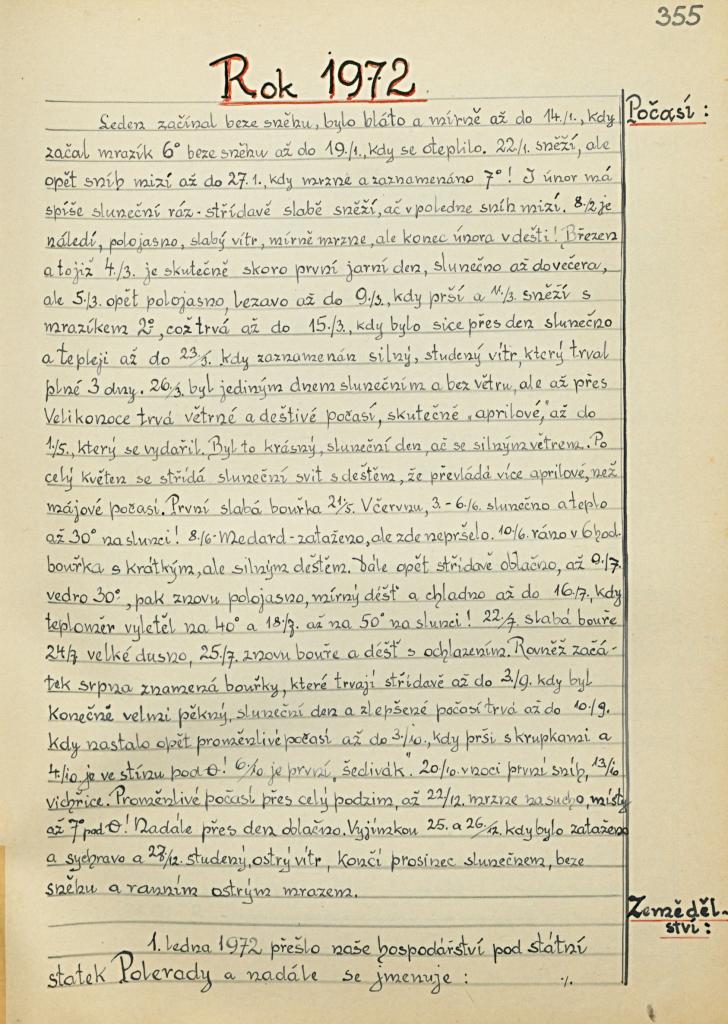 355
Rok 1972
Počasí:
Leden začínal beze sněhu, bylo bláto a mírně až do 14/1., kdy
začal mrazík 6° beze sněhu až do 19/1., kdy se oteplilo. 22/1. sněží, ale
opět sníh mizí až do 27.1., kdy mrzne a zaznamenáno 7°! I únor má
spíše sluneční ráz - střídavě slabě sněží, ač v poledne sníh mizí. 8/2 je
náledí, polojasno, slabý vítr, mírně mrzne, ale konec února v dešti! Březen
a to již 4./3. je skutečně skoro první jarní den, slunečno až do večera,
ale 5./3. opět polojasno, lezavo až do 9./3., kdy prší a 11./3. sněží s
mrazíkem 2°, což trvá až do 15./3., kdy bylo sice přes den slunečno
a tepleji až do 23/3. kdy zaznamenán silný, studený vítr, který trval
plné 3 dny. 26/3. byl jediným dnem slunečním a bez větru, ale až přes
Velikonoce trvá větrné a deštivé počasí, skutečně "aprilové," až do
1./5., který se vydařil. Byl to krásný, sluneční den, ač se silným větrem. Po
celý květen se střídá sluneční svit s deštěm, že převládá více aprilové, než
májové počasí. První slabá bouřka 21/5. V červnu, 3. - 6./6. slunečno a teplo
až 30° na slunci! 8./6 - Medard - zataženo, ale zde nepršelo. 10/6. ráno v 6 hod.
bouřka s krátkým, ale silným deštěm. Dále opět střídavě oblačno, až 9./7.
vedro 30°, pak znovu polojasno, mírný déšť a chladno až do 16./7., kdy
teploměr vyletěl na 40° a 18./7. až na 50° na slunci! 22./7. slabá bouře
24/7 velké dusno, 25./7. znovu bouře a déšť s ochlazením. Rovněž začá-
tek srpna znamená bouřky, které trvají střídavě až do 3./9. kdy byl
konečně velmi pěkný, sluneční den a zlepšené počasí trvá až do 10./9.
kdy nastalo opět proměnlivé počasí až do 3./10., kdy prší s krupkami a
4./10. je ve stínu pod 0! 6/10 je první "šedivák". 20/10. v noci první sníh, 13/10
vichřice. Proměnlivé počasí přes celý podzim, až 22/12. mrzne na sucho, místy
až 7° pod 0! Nadále přes den oblačno. Vyjímkou 25. a 26/12. kdy bylo zataženo
a sychravo a 27/12. studený, ostrý vítr, končí prosinec slunečnem, beze
sněhu a ranním ostrým mrazem.
Zeměděl-
ství:
1. ledna 1972 přešlo naše hospodářství pod státní
statek Polerady a nadále se jmenuje : ./.